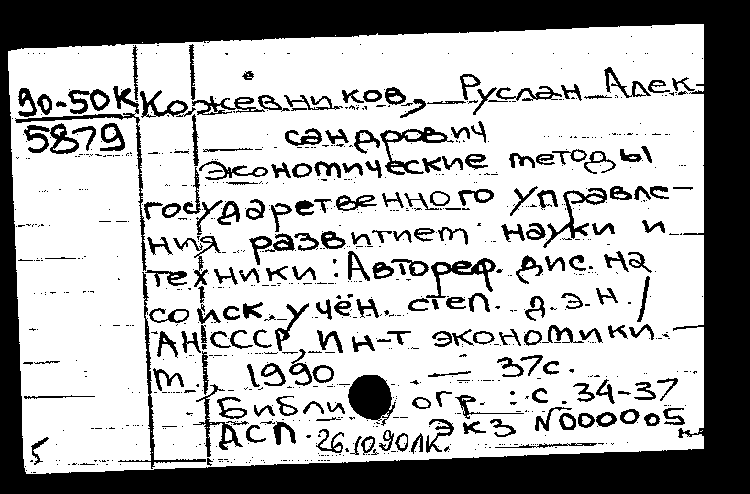 90-50К Кожевников, Руслан Алек-
5879 сандрович
Экономические методы
государственного управле-
ния развитием науки и
техники : Автореф. дис. на
соиск. учён. степ. д.э.н. /
АН СССР, Ин-т экономики. —
М., 1990. — 37с.
Библиогр. : с. 34-37
ДСП. Экз N000005
26.10.90 ЛК.
5